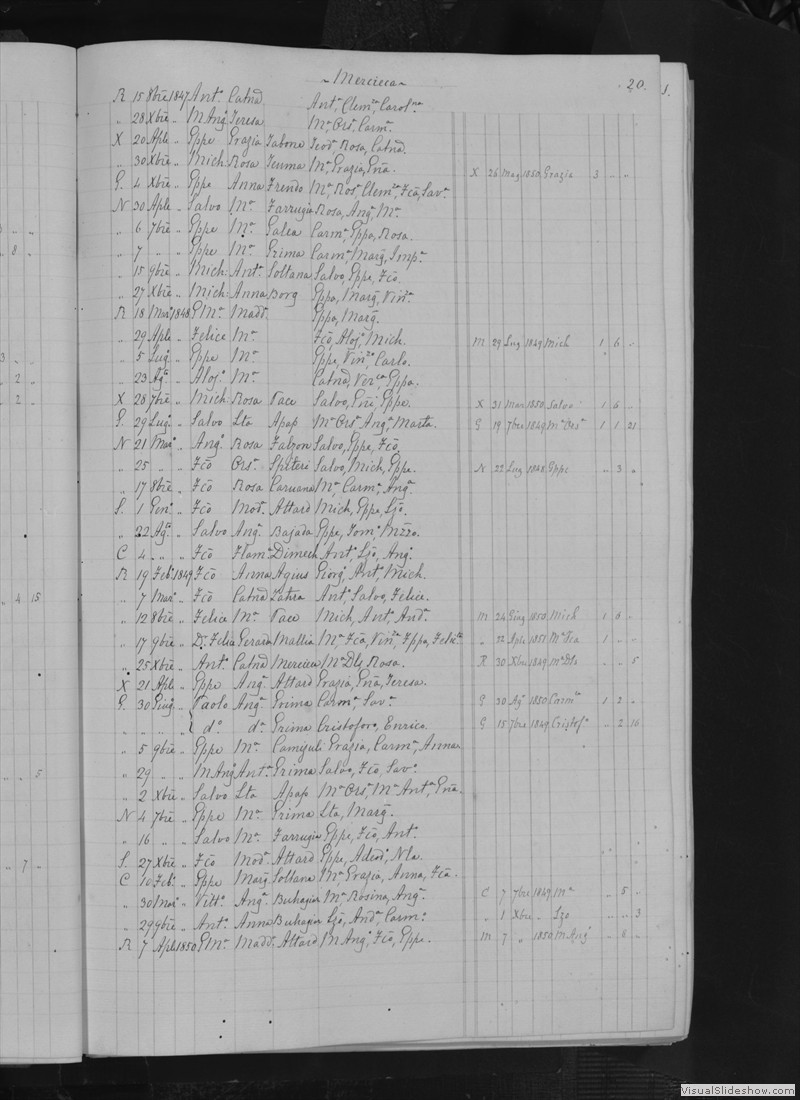 ~ Mercieca ~ 20.
R 15 8bre 1847 Ant.º Catnd Ant.ª, Clem.ª, Carol.na
„ 28 Xbre „ M Ang.º Teresa M.ª, Crs.ª, Carm.ª
X 20 Aple „ Gppe Grazia Tabone Teod.ª, Rosa, Catnd.
„ 30 Xbre „ Mich: Rosa Teuma M.ª, Grazia, X 26 Mag 1850 Grazia 3 „ „
G. 4 Xbre „ Gppe Anna Frendo M.ª, Ros.ª, Clem.ª, Fcõ, Sav.ª
N 30 Aple „ Salvo M.ª Farrugia Rosa, Ang.ª, M.ª
„ 6 7bre „ Gppe M.ª Galea Carm.ª, Gppa, Rosa.
„ 7 „ „ Gppe M.ª Grima Carm.ª, Marg̃, Imp.ª
„ 15 9bre „ Mich: Ant.ª Soltana Salvo, Gppe, Fcõ.
„ 27 Xbre „ Mich: Anna Borg Gppa, Marg̃, Vin.ª
R 18 Mar.º 1848 G M.ª Madd. Gppa, Marg̃.
„ 29 Aple „ Felice M.ª Fcõ, Aloj.º, Mich. M 29 Lug 1849 Mich 1 6 „
„ 5 Lug.º „ Gppe M.ª Gppe, Vin.zo, Carlo.
„ 23 Ag.º „ Aloj.º M.ª Catnd, Gppa.
X 28 7bre „ Mich: Rosa Pace Salvo, Gppe. X 31 Mar 1850 Salvo 1 6 „
G. 29 Lug.º „ Salvo Lta Apap M.ª Crs.ª, Ang.ª, Marta. G 19 7bre 1849 M.ª Crs.ª 1 1 21
N 21 Mar.º „ Ang.º Rosa Falzon Salvo, Gppe, Fcõ.
„ 25 „ „ Fcõ Crs.ª Spiteri Salvo, Mich, Gppe. N 22 Lug 1848 Gppe „ 3 „
„ 17 8bre „ Fcõ Rosa Caruana M.ª, Carm.ª, Ang.ª
S. 1 Gen.º „ Fcõ Mod.ª Attard Mich, Gppe, Ljõ.
„ 22 Ag.º „ Salvo Ang.ª Bajada Gppe, Tom.º,
C 4 „ „ Fcõ Flam.ª Dimech Ant.º, Ljõ, Ang.º
R 19 Feb.º 1849 Fcõ Anna Agius Giorg.º, Ant.º, Mich.
„ 7 Mar.º „ Fcõ Catnd Zahra Ant.º, Salvo, Felice.
„ 12 8bre „ Felice M.ª Pace Mich, Ant.º, And.ª M 24 Giug 1850 Mich 1 8 „
„ 17 9bre „ Felice Gerard.ª Mallia M.ª, Fcõ, Vin.ª, Gppa, „ 22 Aple 1851 M.ª Fca 1 „ „
„ 25 Xbre „ Ant.º Catnd Mercieca M.ª Dls, Rosa. R 30 Xbre 1849 M.ª Dls „ „ 5
X 21 Aple „ Gppe Ang.ª Attard Grazia, Teresa.
G. 30 Giug.º „ Paolo Ang.ª Grima Carm.ª, Sav.ª G 30 Ag.º 1850 Carm.la 1 2 „
„ „ „ „ d.º d.ª Grima Cristoforo, Enrica. G 15 7bre 1849 Cristof.º „ 2 16
„ 5 9bre „ Gppe M.ª Camijuli Grazia, Carm.ª, Anna
„ 29 „ „ M Ang.º Ant.ª Grima Salvo, Fcõ, Sav.ª
„ 2 Xbre „ Salvo Lta Apap M.ª Crs.ª, M.ª Ant.ª,
N 4 7bre „ Gppe M.ª Grima Lta, Marg̃.
„ 16 „ „ Salvo M.ª Farrugia Gppe, Fcõ, Ant.º
S 27 Xbre „ Fcõ Mod.ª Attard Gppe, Adeod.º, Nla.
C 10 Feb.º „ Gppe Marg̃ Soltana M.ª Grazia, Anna, Fcã.
„ 30 Mar.º „ Vitt.º Ang.ª Buhagiar M.ª Rosina, Ang.ª C 7 7bre 1849 M.ª „ 5 „
„ 29 9bre „ Ant.º Anna Buhagiar Ljõ, And.ª, Carm.º „ 1 Xbre „ Ljo „ „ 3
R 7 Aple 1850 G M.ª Madd. Attard M Ang.º, Fcõ, Gppe. M 7 „ 1850 M Ang.º „ 8 „
1.
8
3
2
2
4 15
5
7
VisualSlideshow.com